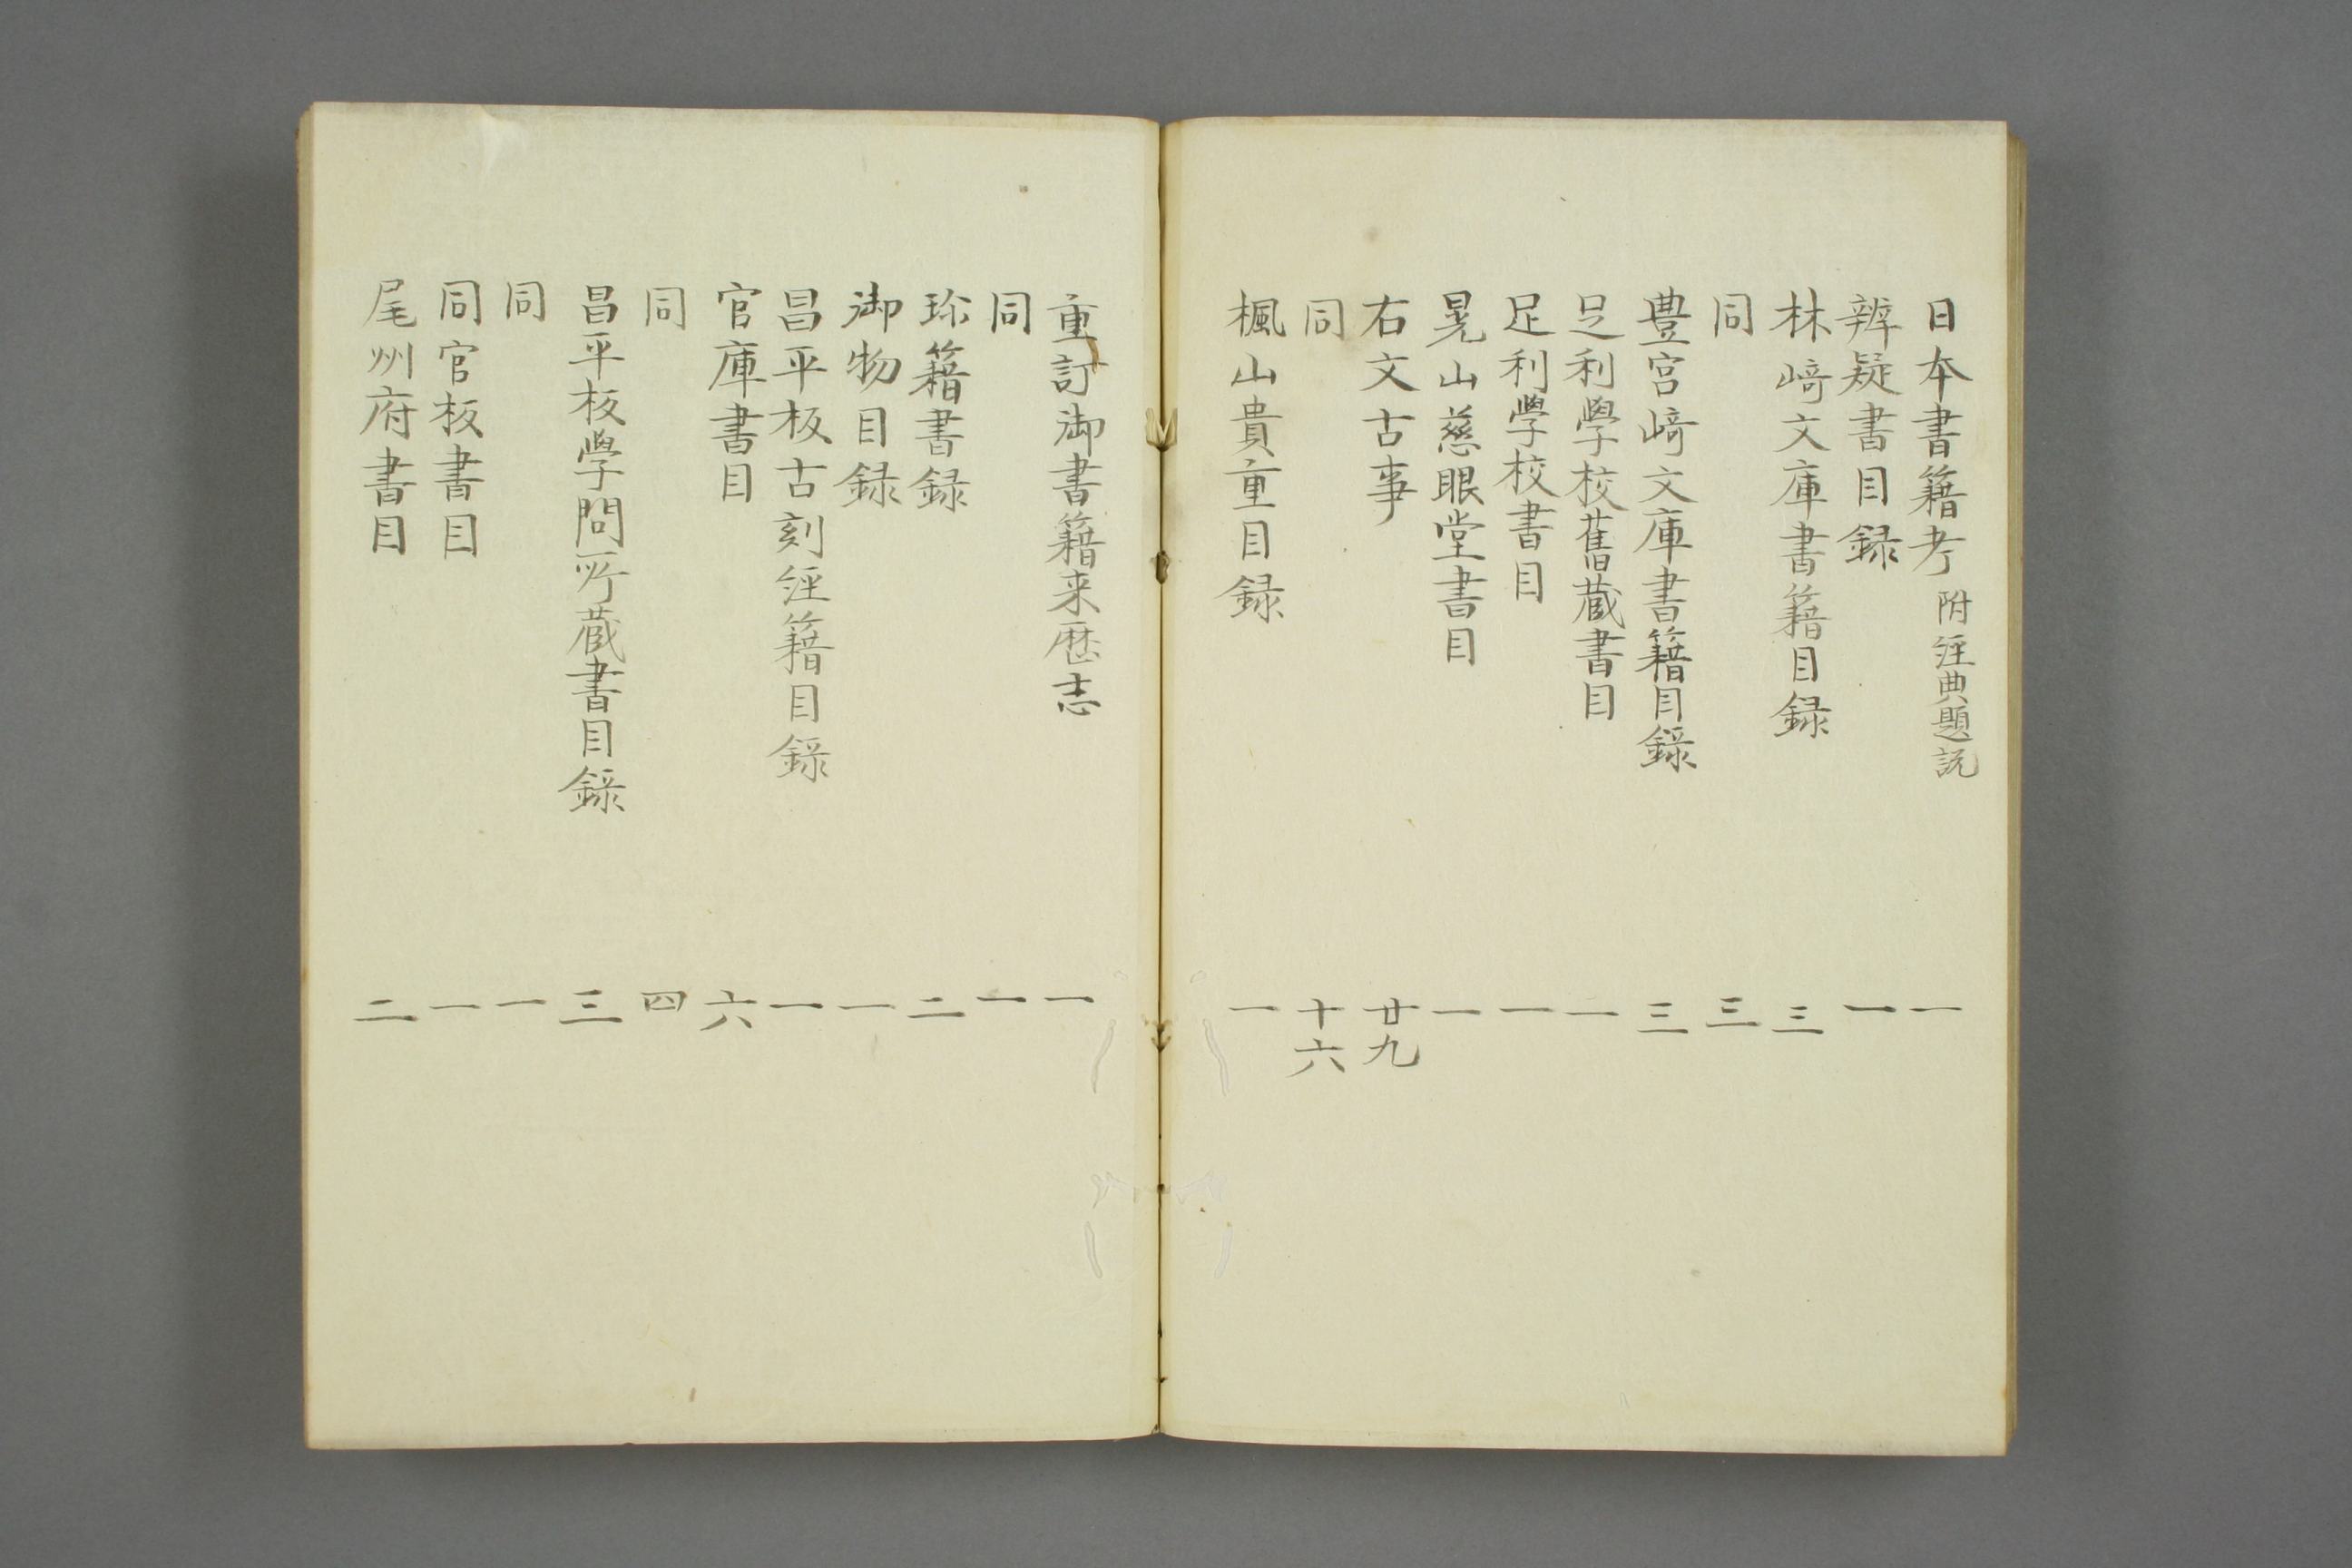 日本書籍考 附経典題説 一
辨疑書目録 一
林﨑文庫書籍目録 三
同 三
豊宮﨑文庫書籍目録 三
足利學校舊蔵書目 一
足利学校書目 一
晃山慈眼堂書目 一
右文古事 廿九
同 十六
楓山貴重目録 一
重訂御書籍来歴志 一
同 一
珎籍書録 二
御物目録 一
昌平板古刻経籍目録 一
官庫書目 六
同 四
昌平板学問所蔵書目録 三
同 一
同官板書目 一
尾州府書目 二